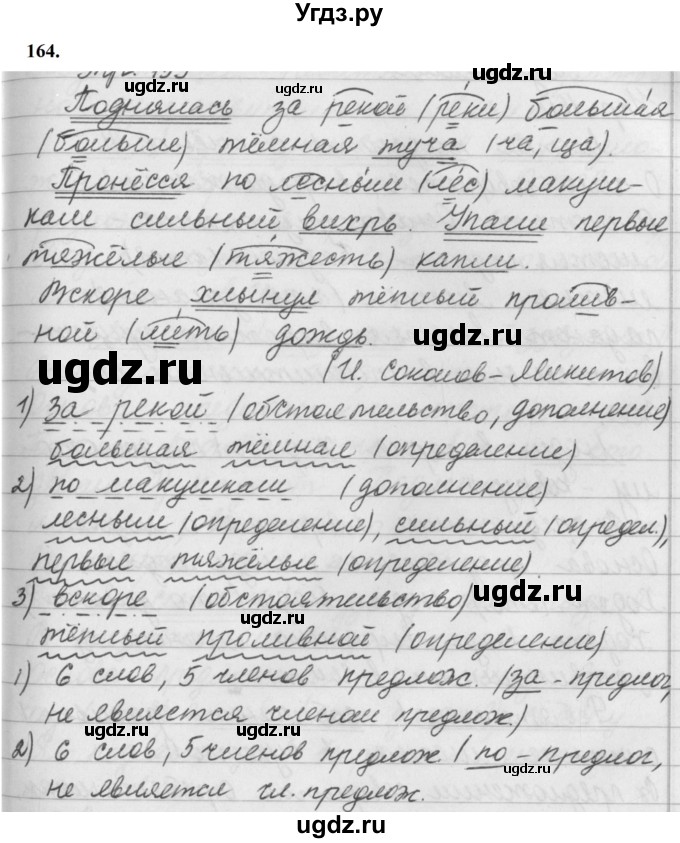 Угдз.ру
164.
Поднялась за рекой (реки) большая
ugdz.ru ugdz.ru
(больше) тёмная туча (ча, ща).
Пронёсся по лесным (лес) макуш-
ugdz.ru
кам сильный вихрь. Упали первые
тяжёлые (тяжесть) капли.
ugdz.ru
Вскоре хлынул тёплый пролив-
ной (лить) дождь.
ugdz.ru ugdz.ru
(И. Соколов-Микитов)
1) за рекой (обстоятельство, дополнение)
ugdz.ru
большая тёмная (определение)
2) по макушкам (дополнение)
лесным (определение), сильный (определ.),
ugdz.ru
первые тяжёлые (определение)
ugdz.ru
3) вскоре (обстоятельство)
тёплый проливной (определение)
1) 6 слов, 5 членов предлож. (за - предлог,
ugdz.ru
не является членом предлож.)
2) 6 слов, 5 членов предлож. (по - предлог,
ugdz.ru
не является чл. предлож.
ugdz.ru
ugdz.ru